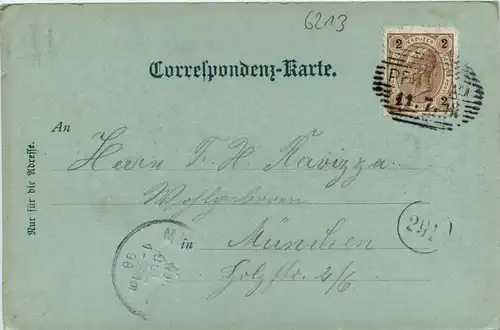 6213
2 2
Correspondenz-Karte.
2 2
11.7.
Nur für die Adresse.
An
Herrn F. H. Ravizza
Wohlgeboren
in München
Holzstr. 2/6
241